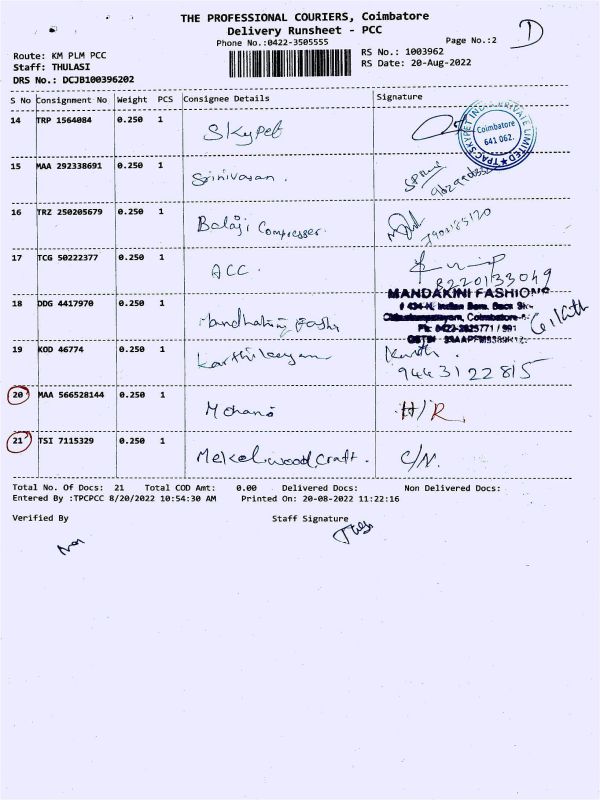 THE PROFESSIONAL COURIERS, Coimbatore
Delivery Runsheet - PCC
Phone No.:0422-3505555
Page No.:2
D
Route: KM PLM PCC
RS No.: 1003962
Staff: THULASI
RS Date: 20-Aug-2022
DRS No.: DCJB100396202
S No Consignment No Weight PCS Consignee Details Signature
14 TRP 1564084 0.250 1 Skypet
TPAC SKYPET INDIA PRIVATE LIMITED
Coimbatore
641 062.
15 MAA 292338691 0.250 1 Srinivasan.
16 TRZ 250205679 0.250 1 Balaji Compresser.
17 TCG 50222377 0.250 1 ACC.
8220133049
18 DDG 4417970 0.250 1
MANDAKINI FASHIONS
Coimbatore
19 KOD 46774 0.250 1 Karthikeyan Karth.
9443122815
20 MAA 566528144 0.250 1 Mohana H/R
21 TSI 7115329 0.250 1 Mekal wood craft. C/N.
Total No. Of Docs: 21 Total COD Amt: 0.00 Delivered Docs: Non Delivered Docs:
Entered By :TPCPCC 8/20/2022 10:54:30 AM Printed On: 20-08-2022 11:22:16
Verified By Staff Signature